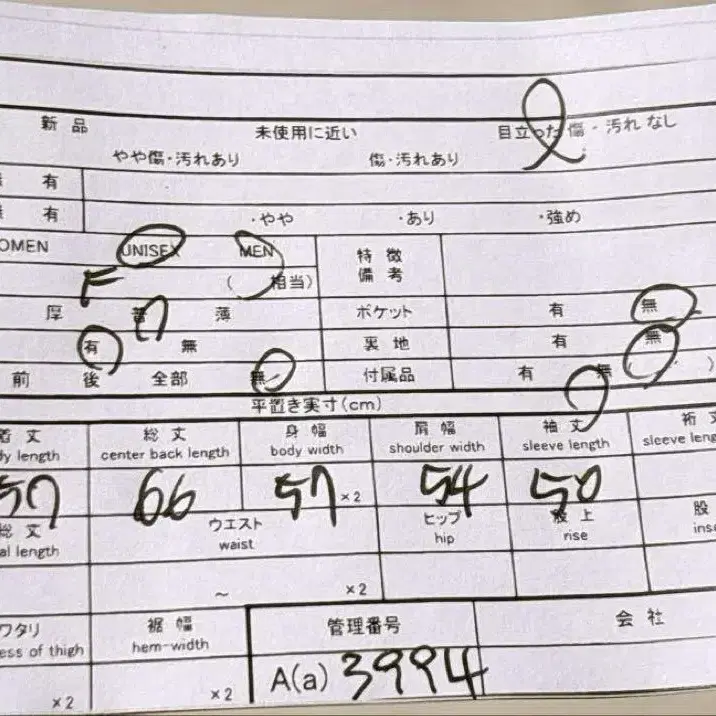 新品 未使用に近い 目立った傷・汚れなし
やや傷・汚れあり 傷・汚れあり
有
有 ・やや ・あり ・強め
OMEN UNISEX MEN 特徴
備考
F ( 相当)
厚 普 薄 ポケット 有 無
有 無 裏地 有 無
前 後 全部 無 付属品 有 無 ( )
平置き実寸(cm)
着丈 総丈 身幅 肩幅 袖丈 裄丈
dy length center back length body width shoulder width sleeve length sleeve leng
57 66 57 ×2 54 50
総丈 ウエスト ヒップ 股上 股
al length waist hip rise ins
～ ×2
ワタリ 裾幅 管理番号 会社
ess of thigh hem-width
×2 ×2 A(a) 3994